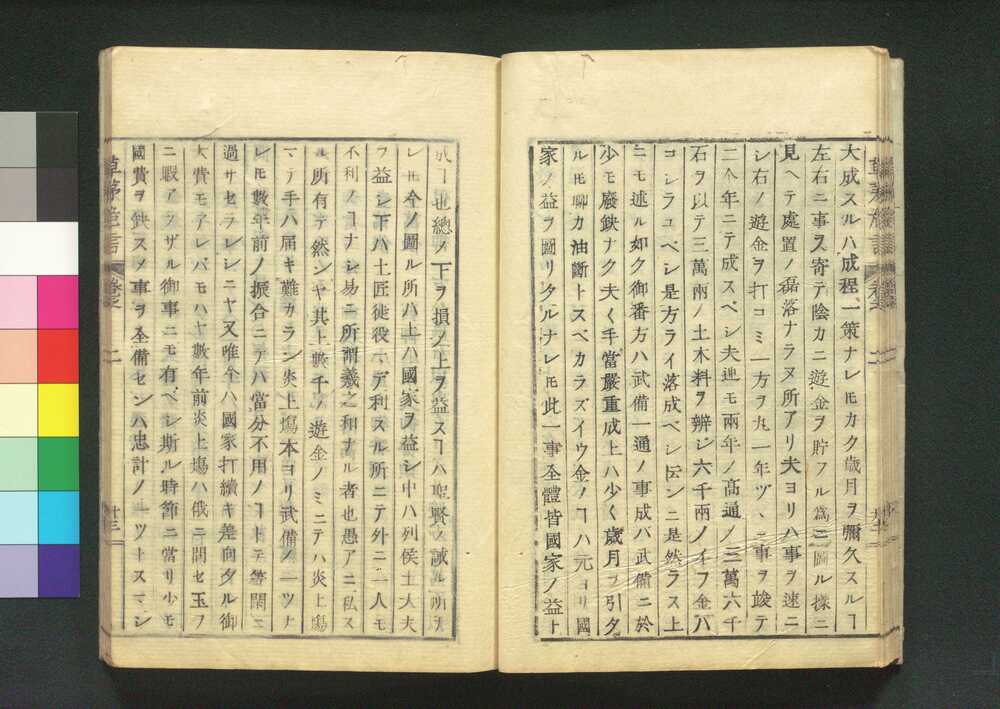 大成スルハ成程一策ナレ𪜈カク歳月ヲ彌久スルヿ
左右ニ事ヲ寄テ陰カニ遊金ヲ貯フル爲ニ圖ル樣ニ
見ヘテ處置ノ磊落ナラヌ所アリ夫ヨリハ事ヲ速ニ
シ右ノ遊金ヲ打コミ一方ヲ凡一年ヅヽニ事ヲ竣テ
二个年ニテ成スベシ夫迚モ兩年ノ髙通ノ三萬六千
石ヲ以テ三萬兩ノ土木料ヲ辨シ六千兩ノイフ金ハ
コシラユベシ是方ライ落成ベシ㐧ニ是然ラス上
ニモ述ル如ク御番方ハ武備一通ノ事成バ武備ニ於
少モ廢鈌ナク夫〱手當嚴重成上ハ少〱歳月ヲ引タ
ル𪜈聊カ油斷トスベカラズイウ金ノヿハ元ヨリ國
家ノ益ヲ圖リタルナレ𪜈此一事全體皆國家ノ益ト
成ヿ也總〆下ヲ損ノ上ヲ益スヿハ聖賢ノ誡ル所ナ
レ𪜈今ノ圖ル所ハ上ハ國家ヲ益シ中ハ列侯士大夫
ヲ益シ下ハ土匠徒役マデ利スル所ニテ外ニ一人モ
不利ノヿナシ易ニ所謂義之和ナル者也愚アニ私ス
ル所有テ然ンヤ其上數千ノ遊金ノミニテハ炎上塲
マテ手ハ届キ難カラン炎上塲本ヨリ武備ノ一ツナ
レ𪜈數年前ノ振合ニテハ當分不用ノヿトテ等閑ニ
過サセラレシニヤ又唯今ハ國家打續キ差向タル御
大費モアレバモハヤ數年前炎上塲ハ俄ニ開セ玉フ
ニ暇アラザル御事ニモ有ベシ斯ル時節ニ當リ少モ
國費ヲ鈌スメ事ヲ全備センハ忠計ノ一ツトスマシ
草茅危言
卷之二
廿三